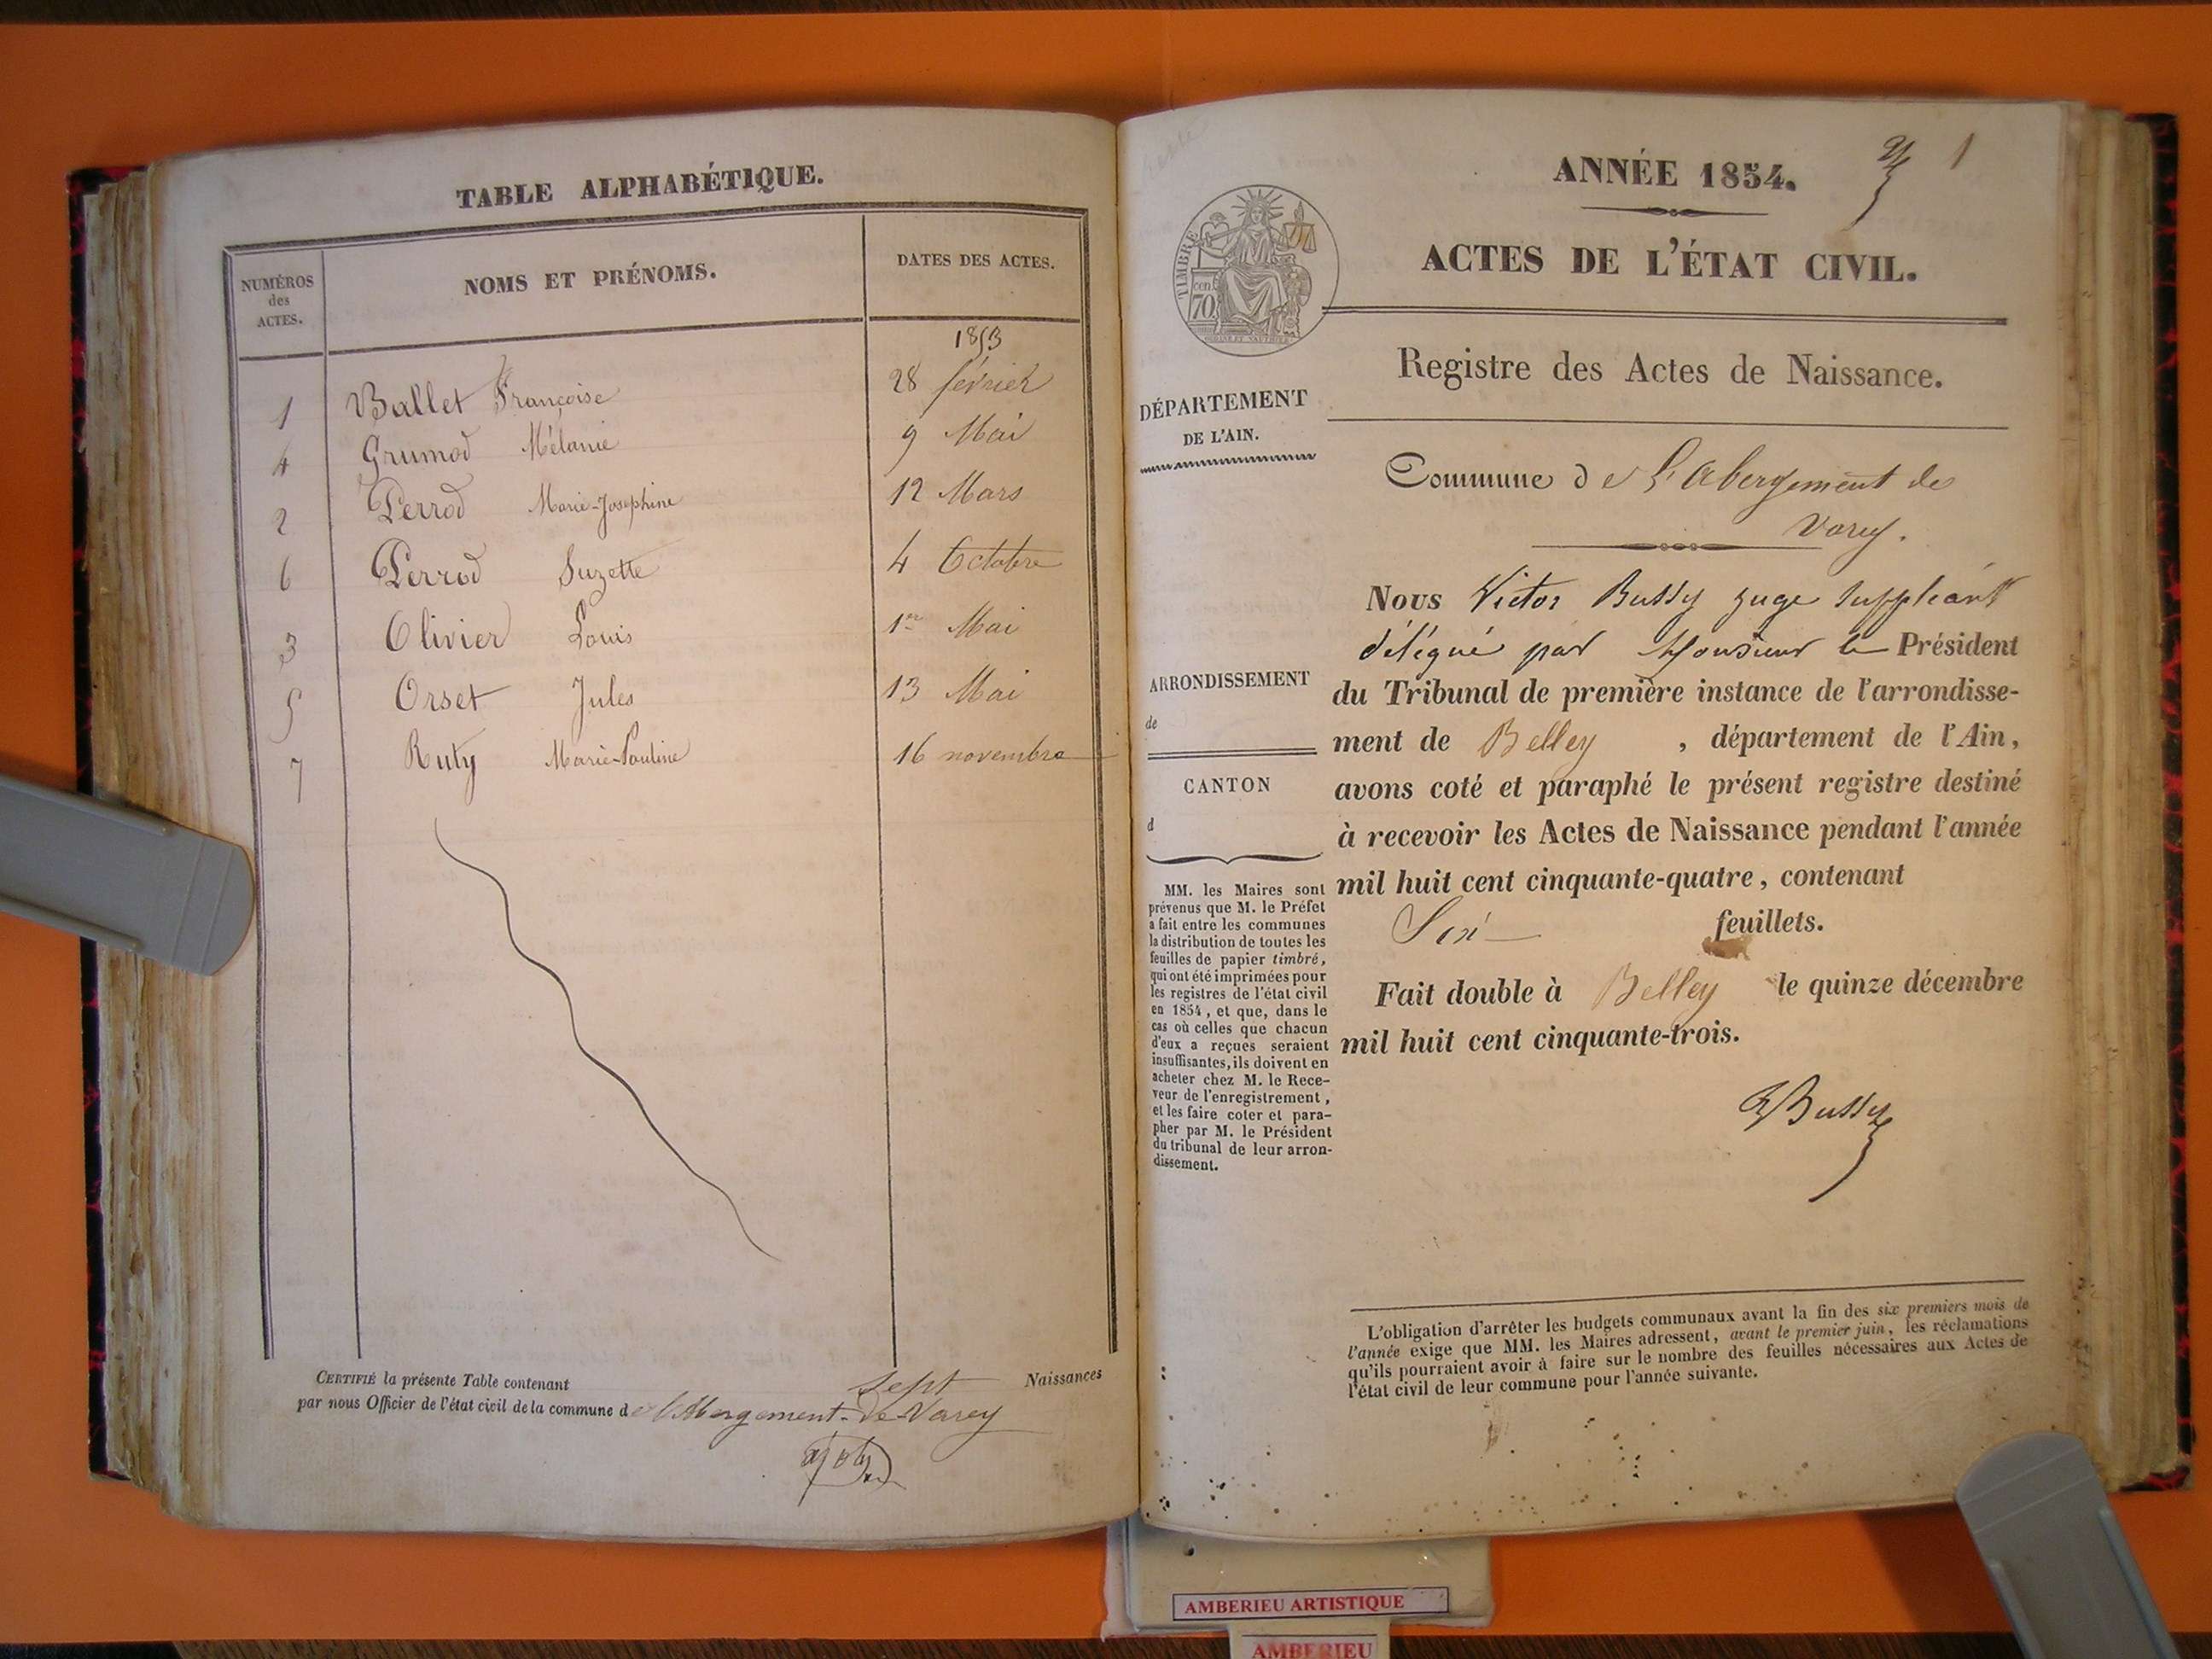 TABLE ALPHABÉTIQUE.
NUMÉROS
des
ACTES.
NOMS ET PRÉNOMS.
DATES DES ACTES.
1853
1 Ballet Françoise 28 février
4 Grumod Mélanie 9 Mai
2 Perrod Marie-Josephine 12 Mars
6 Perrod Suzette 4 Octobre
3 Olivier Louis 1er Mai
5 Orset Jules 13 Mai
7 Ruty Marie-Pauline 16 novembre
CERTIFIÉ la présente Table contenant sept Naissances
par nous Officier de l'état civil de la commune de l'Abergement-de-Varey
1
ANNÉE 1854.
ACTES DE L'ÉTAT CIVIL.
TIMBRE
70 cent
Registre des Actes de Naissance.
DÉPARTEMENT
DE L'AIN.
Commune de L'Abergement de
Varey.
ARRONDISSEMENT
de
CANTON
d
MM. les Maires sont
prévenus que M. le Préfet
a fait entre les communes
la distribution de toutes les
feuilles de papier timbré,
qui ont été imprimées pour
les registres de l'état civil
en 1854, et que, dans le
cas où celles que chacun
d'eux a reçues seraient
insuffisantes, ils doivent en
acheter chez M. le Rece-
veur de l'enregistrement,
et les faire coter et para-
pher par M. le Président
du tribunal de leur arron-
dissement.
Nous Victor Bussy juge suppléant
délégué par Monsieur le Président
du Tribunal de première instance de l'arrondisse-
ment de Belley , département de l'Ain,
avons coté et paraphé le présent registre destiné
à recevoir les Actes de Naissance pendant l'année
mil huit cent cinquante-quatre, contenant
Six feuillets.
Fait double à Belley le quinze décembre
mil huit cent cinquante-trois.
VBussy
L'obligation d'arrêter les budgets communaux avant la fin des six premiers mois de
l'année exige que MM. les Maires adressent, avant le premier juin, les réclamations
qu'ils pourraient avoir à faire sur le nombre des feuilles nécessaires aux Actes de
l'état civil de leur commune pour l'année suivante.
AMBERIEU ARTISTIQUE
AMBERIEU